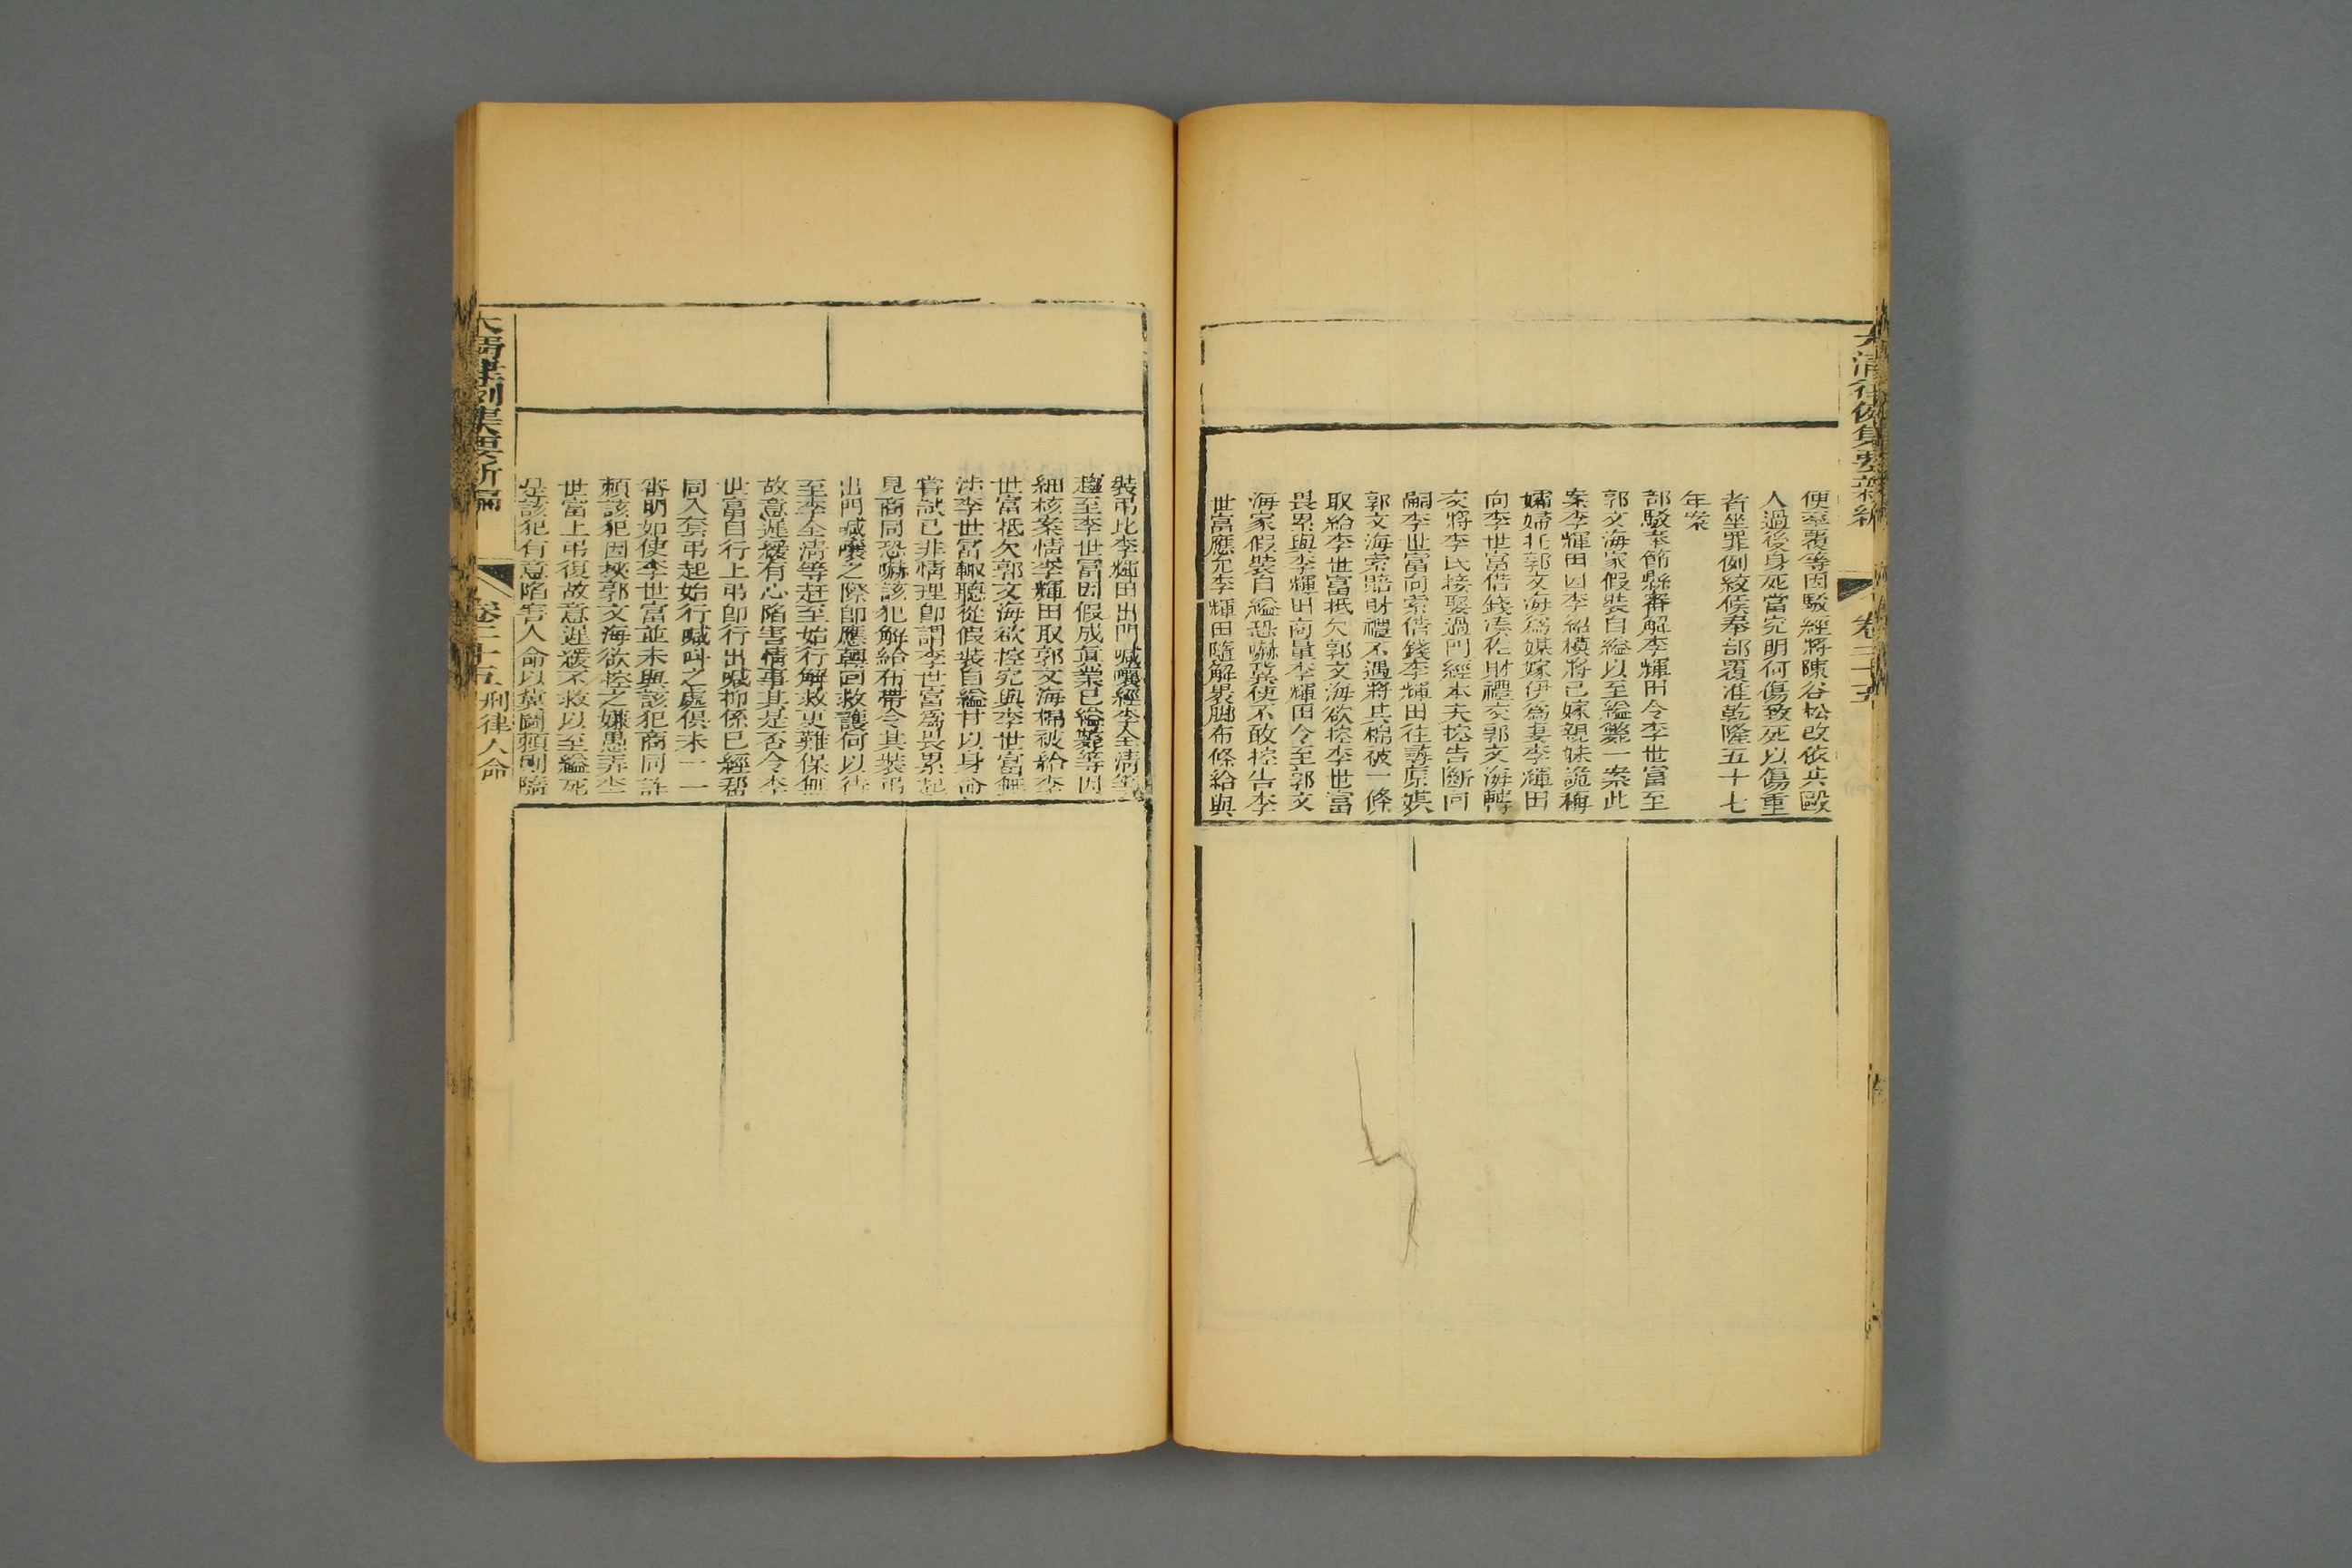 大清律例集要新編
卷二十五
便率覆等因駁經將陳谷松改依共毆
人過後身死當究明何傷致死以傷重
者坐罪例絞候奉部覆准乾隆五十七
年案
部駁奉節縣審解李輝田令李世富至
郭文海家假裝自縊以至縊斃一案此
案李輝田因李紹模將已嫁親妹詭稱
孀婦托郭文海爲媒嫁伊爲妻李輝田
向李世富借錢湊作財禮交郭文海轉
交將李氏接娶過門經本夫控告斷回
嗣李世富向索借錢李輝田往尋原媒
郭文海索賠財禮不遇將其棉被一條
取給李世富抵欠郭文海欲控李世富
畏累與李輝田商量李輝田令至郭文
海家假裝自縊恐嚇冀使不敢控告李
世富應允李輝田隨解裹腳布條給與
裝吊比李輝田出門喊嚷經李全清等
趨至李世富因假成真業已縊斃等因
細核案情李輝田取郭文海棉被給李
世富抵欠郭文海欲控究與李世富無
涉李世富輒聽從假裝自縊甘以身命
嘗試已非情理卽謂李世富爲畏累起
見商同恐嚇該犯解給布帶令其裝吊
出門喊嚷之際卽應轉回救護何以待
至李全清等赶至始行解救更難保無
故意遲緩有心陷害情事其是否令李
世富自行上吊卽行出喊抑係已經幫
同入套吊起始行喊叫之處俱未一一
審明如使李世富並未與該犯商同詐
賴該犯因挾郭文海欲控之嫌愚弄李
世富上吊復故意遲緩不救以至縊死
是該犯有意陷害人命以冀圖賴則隨
大清律例集要新編
卷二十五
刑律人命